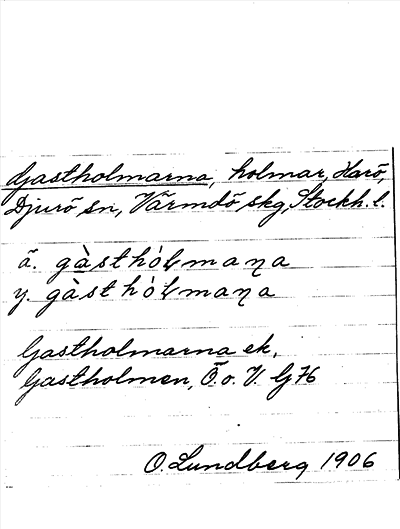 Gastholmarna, holmar, Harö,
Djurö sn, Värmdö skg, Stockh. l.
ä. gàsthólmaņa
y. gàsthólmaņa
Gastholmarna ek.
Gastholmen, Ö. o. V. G76
O. Lundberg 1906